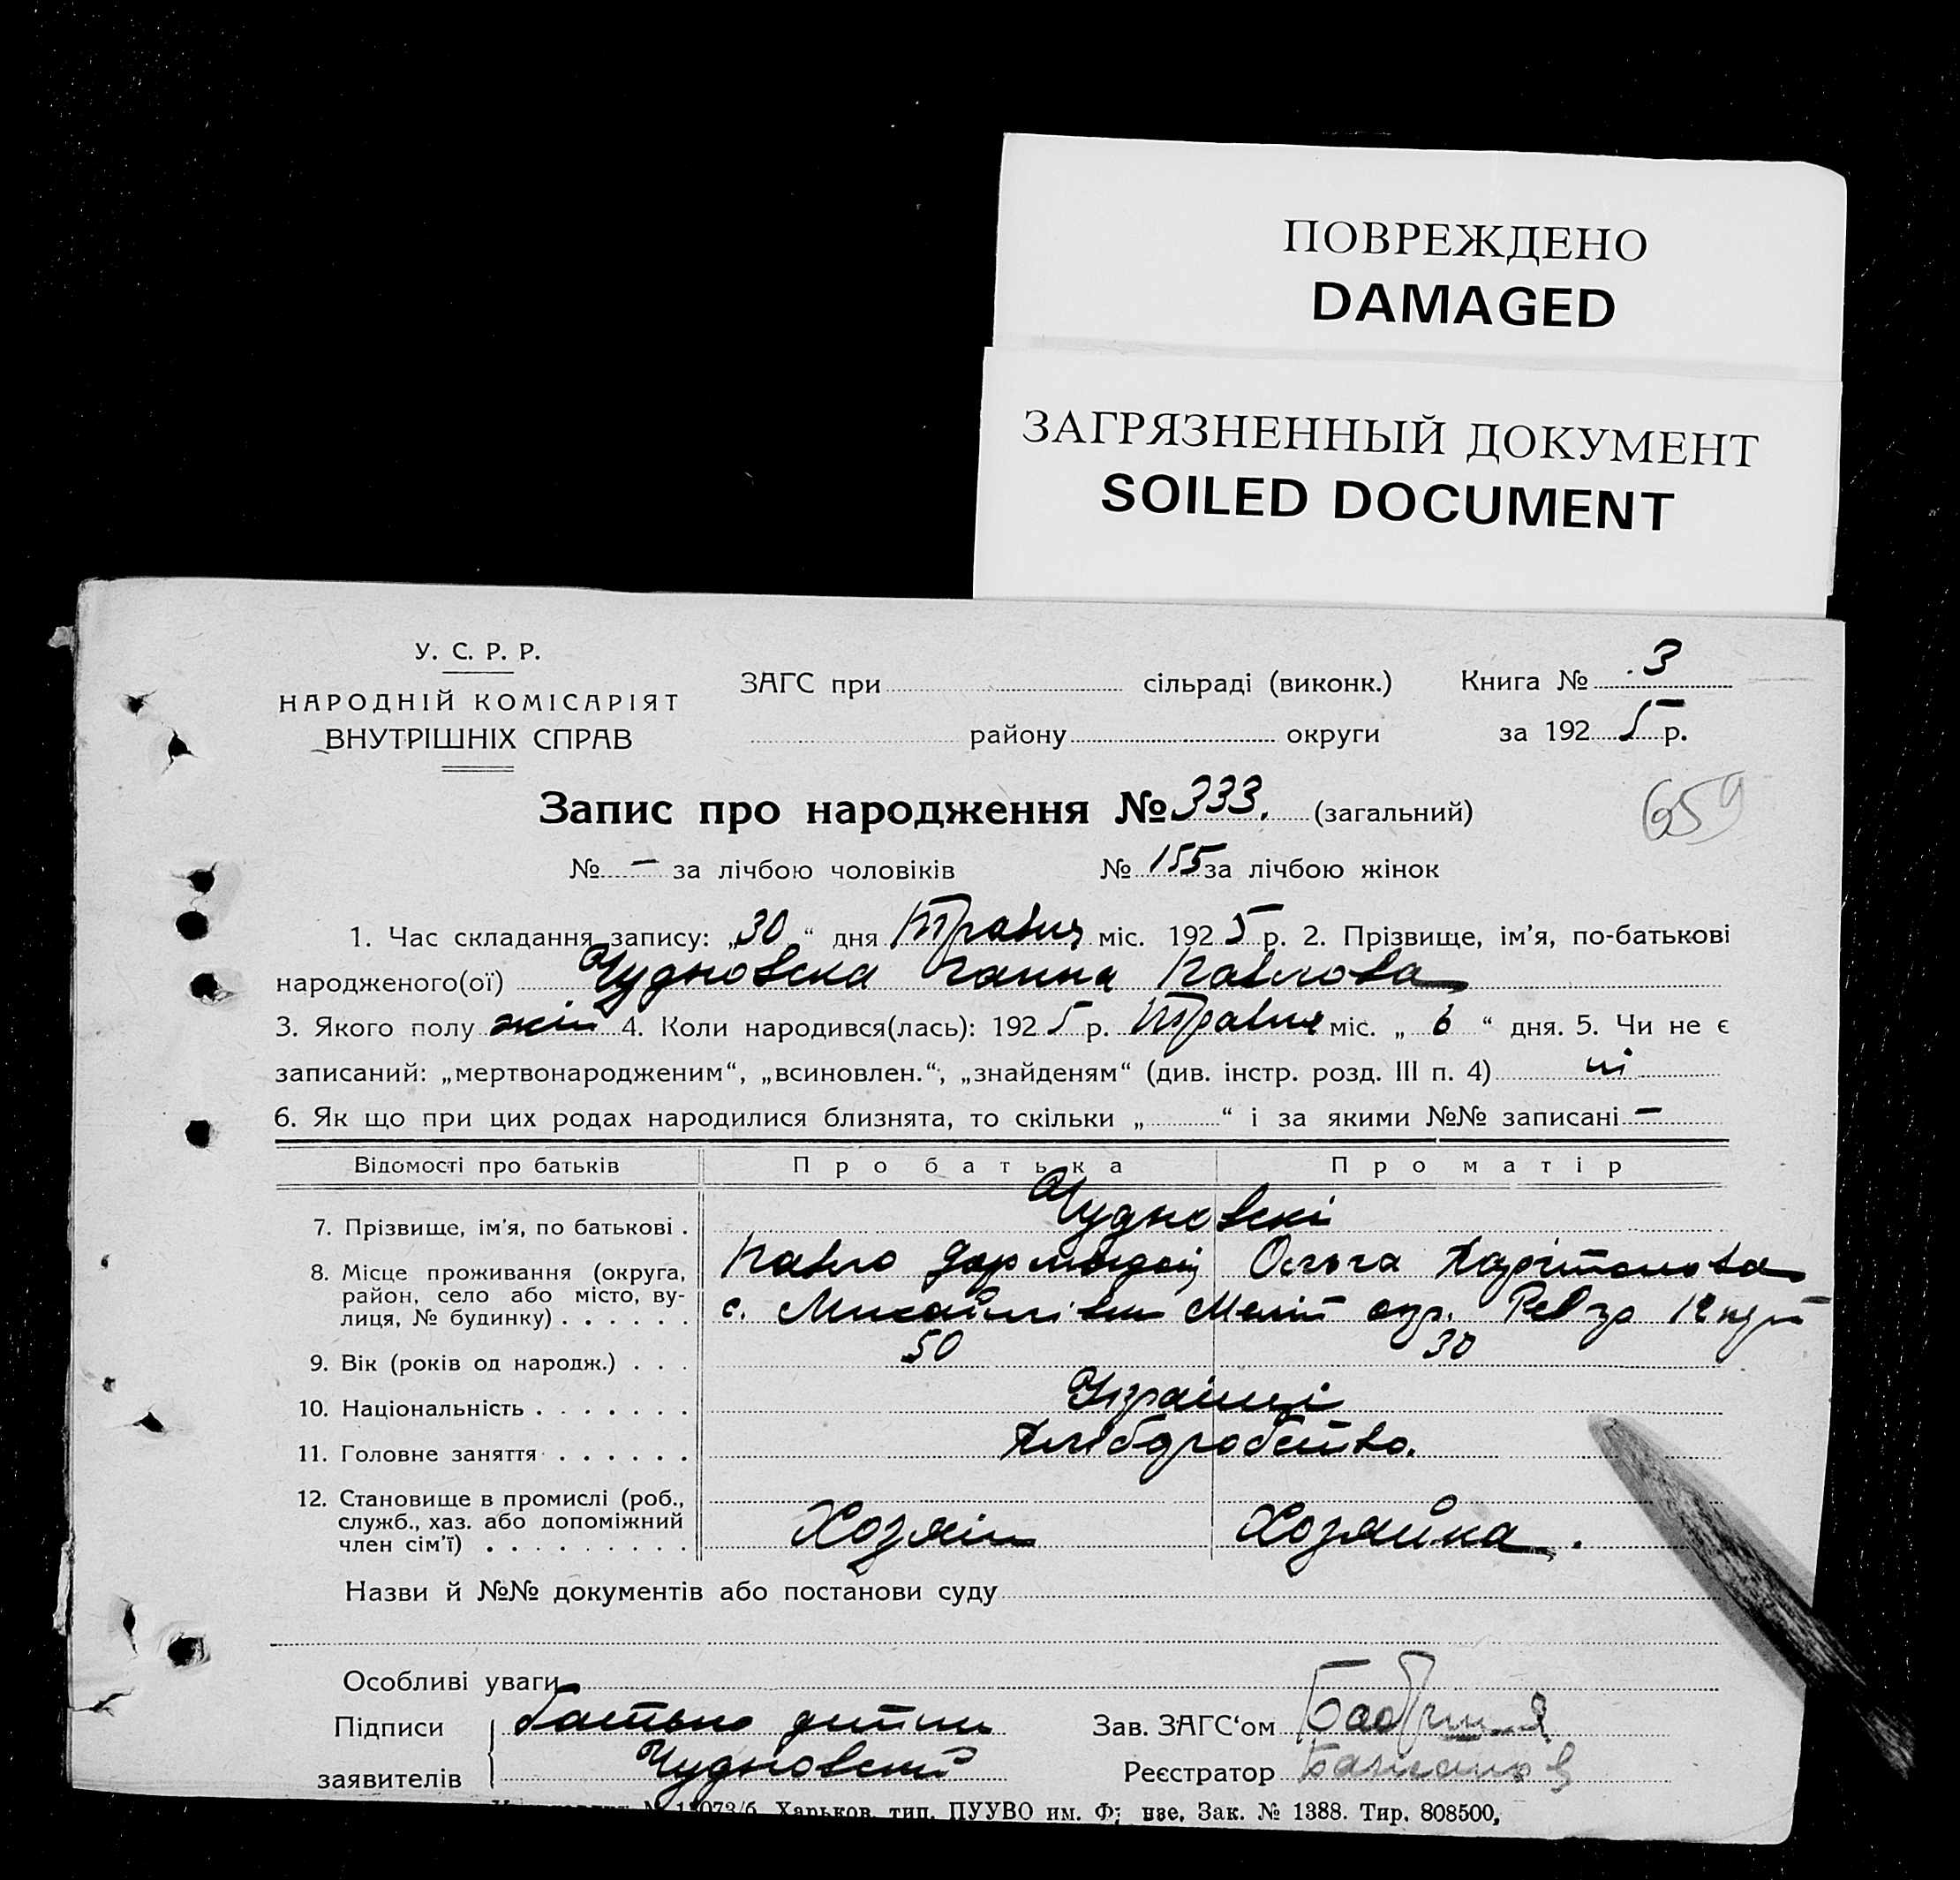 ПОВРЕЖДЕНО
DAMAGED
ЗАГРЯЗНЕННЫЙ ДОКУМЕНТ
SOILED DOCUMENT
У. С. Р. Р.
НАРОДНІЙ КОМІСАРІЯТ
ВНУТРІШНІХ СПРАВ
ЗАГС при сільраді (виконк.) Книга № 3
району округи за 1925 р.
Запис про народження № 333. (загальний)
659
№ — за лічбою чоловіків № 155 за лічбою жінок
1. Час складання запису: „30“ дня Травня міс. 1925 р. 2. Прізвище, ім'я, по-батькові
народженого(ої) Чудновська Ганна Павлова
3. Якого полу жін 4. Коли народився(лась): 1925 р. Травня міс. „6“ дня. 5. Чи не є
записаний: „мертвонародженим“, „всиновлен.“, „знайденям“ (див. інстр. розд. III п. 4) ні
6. Як що при цих родах народилися близнята, то скільки „ “ і за якими №№ записані —
Відомості про батьків Про батька Про матір
7. Прізвище, ім'я, по батькові . Чудновскі
Павло Ольга Харітонова
8. Місце проживання (округа,
район, село або місто, ву-
лиця, № будинку) . . . . . . с. Михайлівки Меліт окр.
9. Вік (років од народж.) . . . 50 30
10. Національність . . . . . . . Українці
11. Головне заняття . . . . . . Хліборобство.
12. Становище в промислі (роб.,
служб., хаз. або допоміжний
член сім'ї) . . . . . . . . . Хозяін Хозяйка.
Назви й №№ документів або постанови суду
Особливі уваги
Підписи батько дитини Зав. ЗАГС'ом
заявителів Чудновский Реєстратор
№ 11073/6. Харьков. тип. ПУУВО им. Зак. № 1388. Тир. 808500,